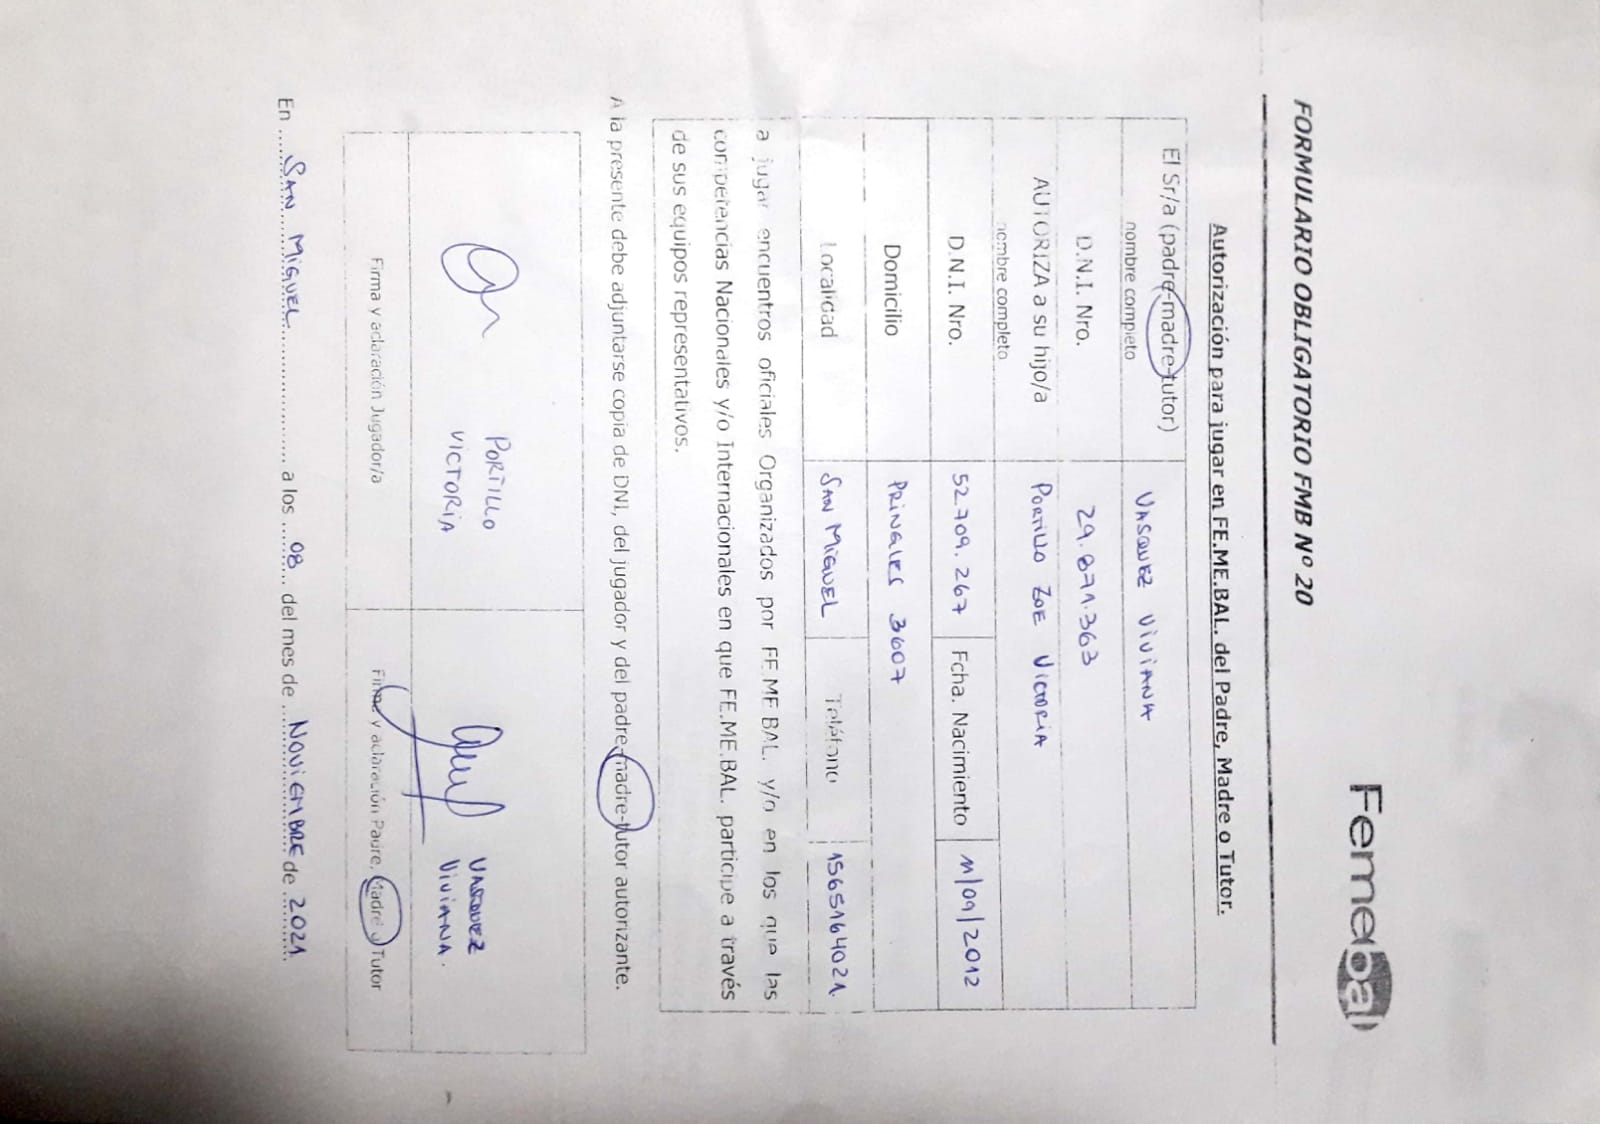 Femebal
FORMULARIO OBLIGATORIO FMB Nº 20
Autorización para jugar en FE.ME.BAL. del Padre, Madre o Tutor.
El Sr/a (padre-madre-tutor) nombre completo VASQUEZ VIVIANA
D.N.I. Nro. 29.871.363
AUTORIZA a su hijo/a nombre completo PORTILLO ZOE VICTORIA
D.N.I. Nro. 52.709.267 Fcha. Nacimiento 11/09/2012
Domicilio PRINGLES 3607
Localidad SAN MIGUEL Teléfono 1565164021.
a jugar encuentros oficiales Organizados por FE.ME.BAL. y/o en los que las
competencias Nacionales y/o Internacionales en que FE.ME.BAL. participe a través
de sus equipos representativos.
A la presente debe adjuntarse copia de DNI, del jugador y del padre-madre-tutor autorizante.
PORTILLO
VICTORIA
VASQUEZ
VIVIANA.
Firma y aclaración Jugador/a
Firma y aclaración Padre, Madre o Tutor
En SAN MIGUEL a los 08 del mes de NOVIEMBRE de 2021